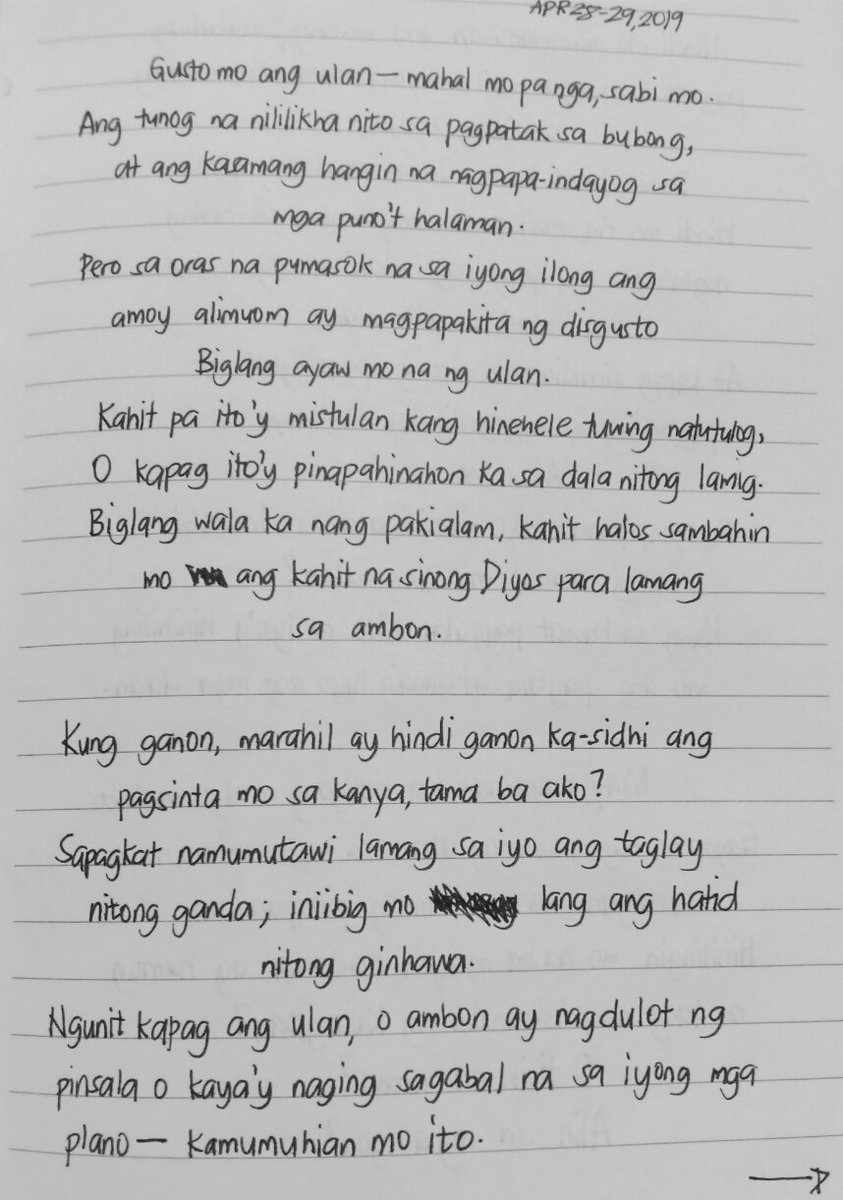 APR 28-29, 2019
Gusto mo ang ulan — mahal mo pa nga, sabi mo.
Ang tunog na nililikha nito sa pagpatak sa bubong,
at ang kaamang hangin na nagpapa-indayog sa
mga puno't halaman.
Pero sa oras na pumasok na sa iyong ilong ang
amoy alimuom ay magpapakita ng disgusto
Biglang ayaw mo na ng ulan.
Kahit pa ito'y mistulan kang hinehele tuwing natutulog,
O kapag ito'y pinapahinahon ka sa dala nitong lamig.
Biglang wala ka nang pakialam, kahit halos sambahin
mo ang kahit na sinong Diyos para lamang
sa ambon.
Kung ganon, marahil ay hindi ganon ka-sidhi ang
pagsinta mo sa kanya, tama ba ako?
Sapagkat namumutawi lamang sa iyo ang taglay
nitong ganda; iniibig mo lang ang hatid
nitong ginhawa.
Ngunit kapag ang ulan, o ambon ay nagdulot ng
pinsala o kaya'y naging sagabal na sa iyong mga
plano — kamumuhian mo ito.